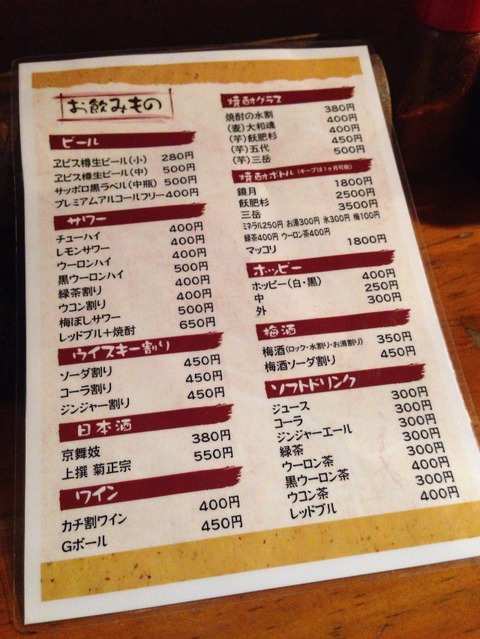 お飲みもの
ビール
ヱビス樽生ビール(小) 280円
ヱビス樽生ビール(中) 500円
サッポロ黒ラベル(中瓶) 500円
プレミアムアルコールフリー 400円
サワー
チューハイ 400円
レモンサワー 400円
ウーロンハイ 400円
黒ウーロンハイ 500円
緑茶割り 400円
ウコン割り 400円
梅ぼしサワー 500円
レッドブル+焼酎 650円
ウイスキー割り
ソーダ割り 450円
コーラ割り 450円
ジンジャー割り 450円
日本酒
京舞妓 380円
上撰 菊正宗 550円
ワイン
カチ割ワイン 400円
Gボール 450円
焼酎グラス
焼酎の水割 380円
(麦)大和魂 400円
(芋)飫肥杉 400円
(芋)五代 450円
(芋)三岳 500円
焼酎ボトル (キープは1ヶ月可能)
鏡月 1800円
飫肥杉 2500円
三岳 3500円
ミネラル250円 お湯300円 氷300円 梅100円
緑茶400円 ウーロン茶400円
マッコリ 1800円
ホッピー
ホッピー(白・黒) 400円
中 250円
外 300円
梅酒
梅酒(ロック・水割り・お湯割り) 350円
梅酒ソーダ割り 450円
ソフトドリンク
ジュース 300円
コーラ 300円
ジンジャーエール 300円
緑茶 300円
ウーロン茶 300円
黒ウーロン茶 400円
ウコン茶 300円
レッドブル 400円